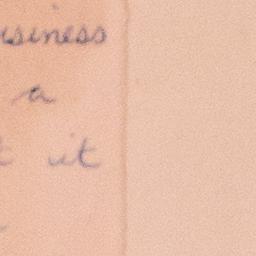 usiness
a
t it